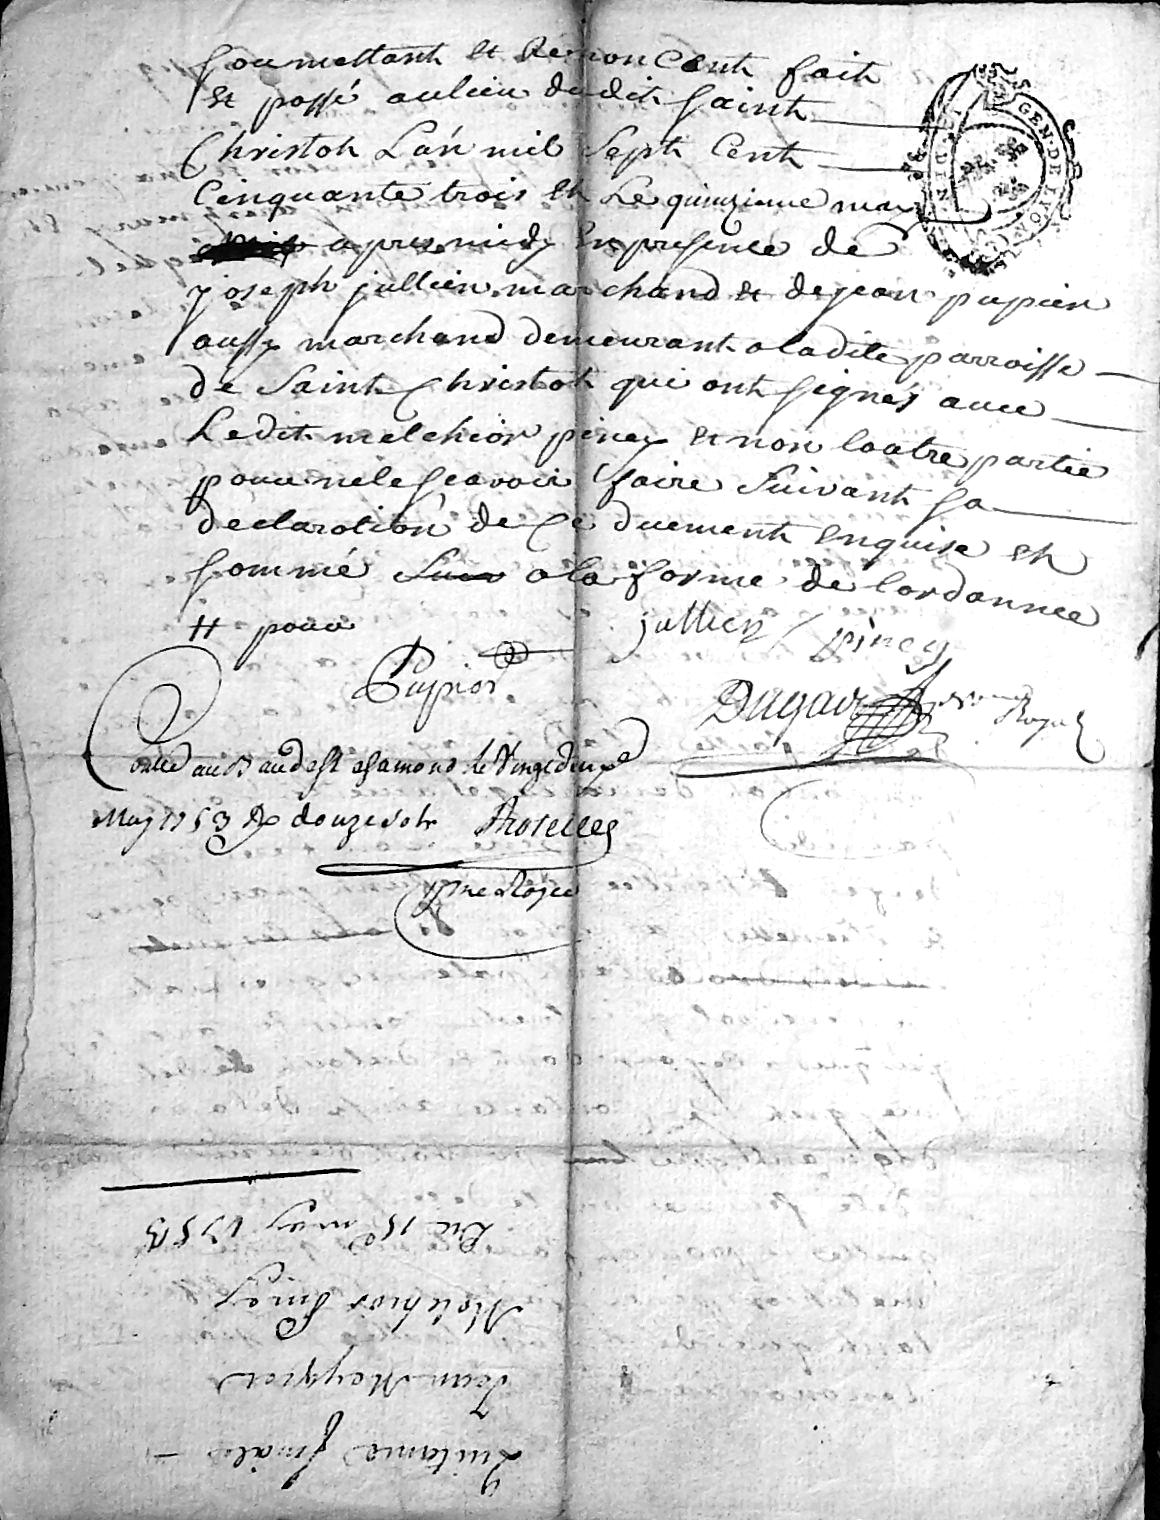 soumettant et Renoncent fait
et passé au lieu dudit saint
Christoh L'an mil sept cent
cinquante trois et Le quinzieme may
apres midy En presence de
joseph jullien marchand et de jean pupier
aussy marchand demeurant a ladite parroisse
de saint Christoh qui ont signés avec
Ledit melchior piney et non lautre partie
pour ne le sçavoir faire suivant sa
declaration de ce duement enquise et
sommé a la forme de lordannce
pour
jullien piney
Pupier
Dugas Royal
GEN. DE LYON
may 1753 douze sols
Le 15e may 1753
Melchior Piney
Jean
Quitance finale